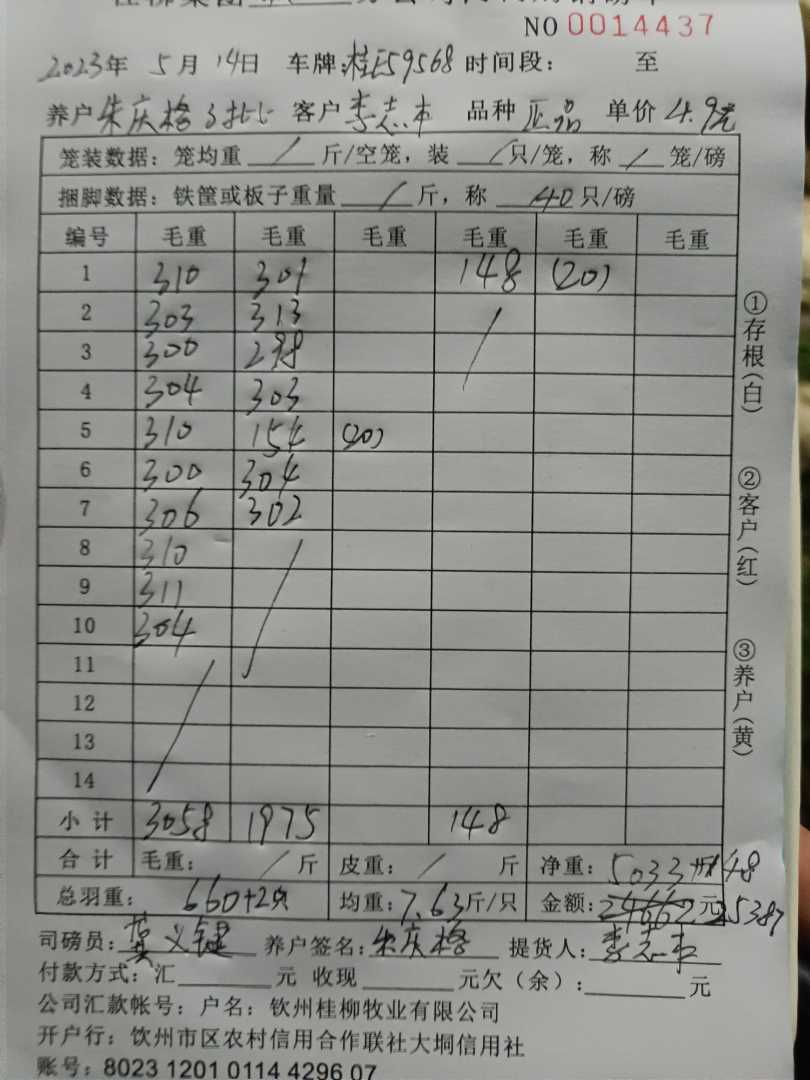 NO 0014437
2023年 5月 14日 车牌:桂E59568 时间段: 至
养户 朱庆格 客户 李志本 品种 正品 单价 4.9元
笼装数据:笼均重 / 斤/空笼,装 / 只/笼,称 / 笼/磅
捆脚数据:铁筐或板子重量 / 斤,称 40 只/磅
编号 毛重 毛重 毛重 毛重 毛重 毛重
1 310 301 148 (20)
2 303 313 /
3 300 298
4 304 303
5 310 154 (20)
6 300 304
7 306 302
8 310 /
9 311
10 304
11 /
12
13
14
小计 3058 1975 148
合计 毛重: / 斤 皮重: / 斤 净重: 5033 斤 148
总羽重: 660+2只 均重: 7.63斤/只 金额: 24662元 25387
司磅员: 义键 养户签名: 朱庆格 提货人: 李志本
付款方式:汇 元 收现 元欠(余): 元
公司汇款帐号:户名:钦州桂柳牧业有限公司
开户行:饮州市区农村信用合作联社大垌信用社
账号:8023 1201 0114 4296 07
①存根(白)
②客户(红)
③养户(黄)